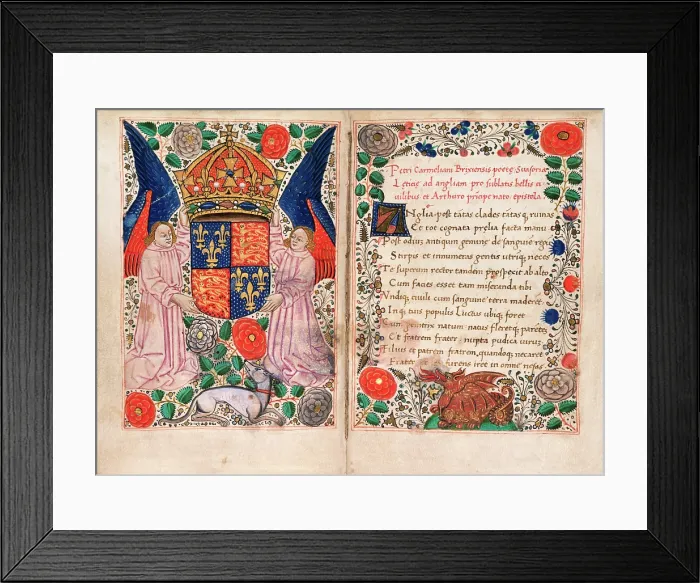 Petri Carmeliani Brixiensis poete Suasoria
Letitię ad angliam pro sublatis bellis ci
uilibus et Arthuro prīcipe nato epistola.
Anglia post tātas clades tātasq; ruinas
Et tot cognata prelia facta manu
Post odium antiquum geminę de sanguine regū
Stirpis et innumeras gentis utriq; neces
Te superum rector tandem prospexit ab alto
Cum faues esset tam miseranda tibi
Vndiq; ciuile cum sanguine terra maderet
Inq; tuis populis Luctus ubiq; foret
Cum genitrix natum natus fleretq; parētes
Et fratrem frater nupta pudica uirum
Filius et patrem fratrem quandoq; necaret
Frater furens iret in omne nefas